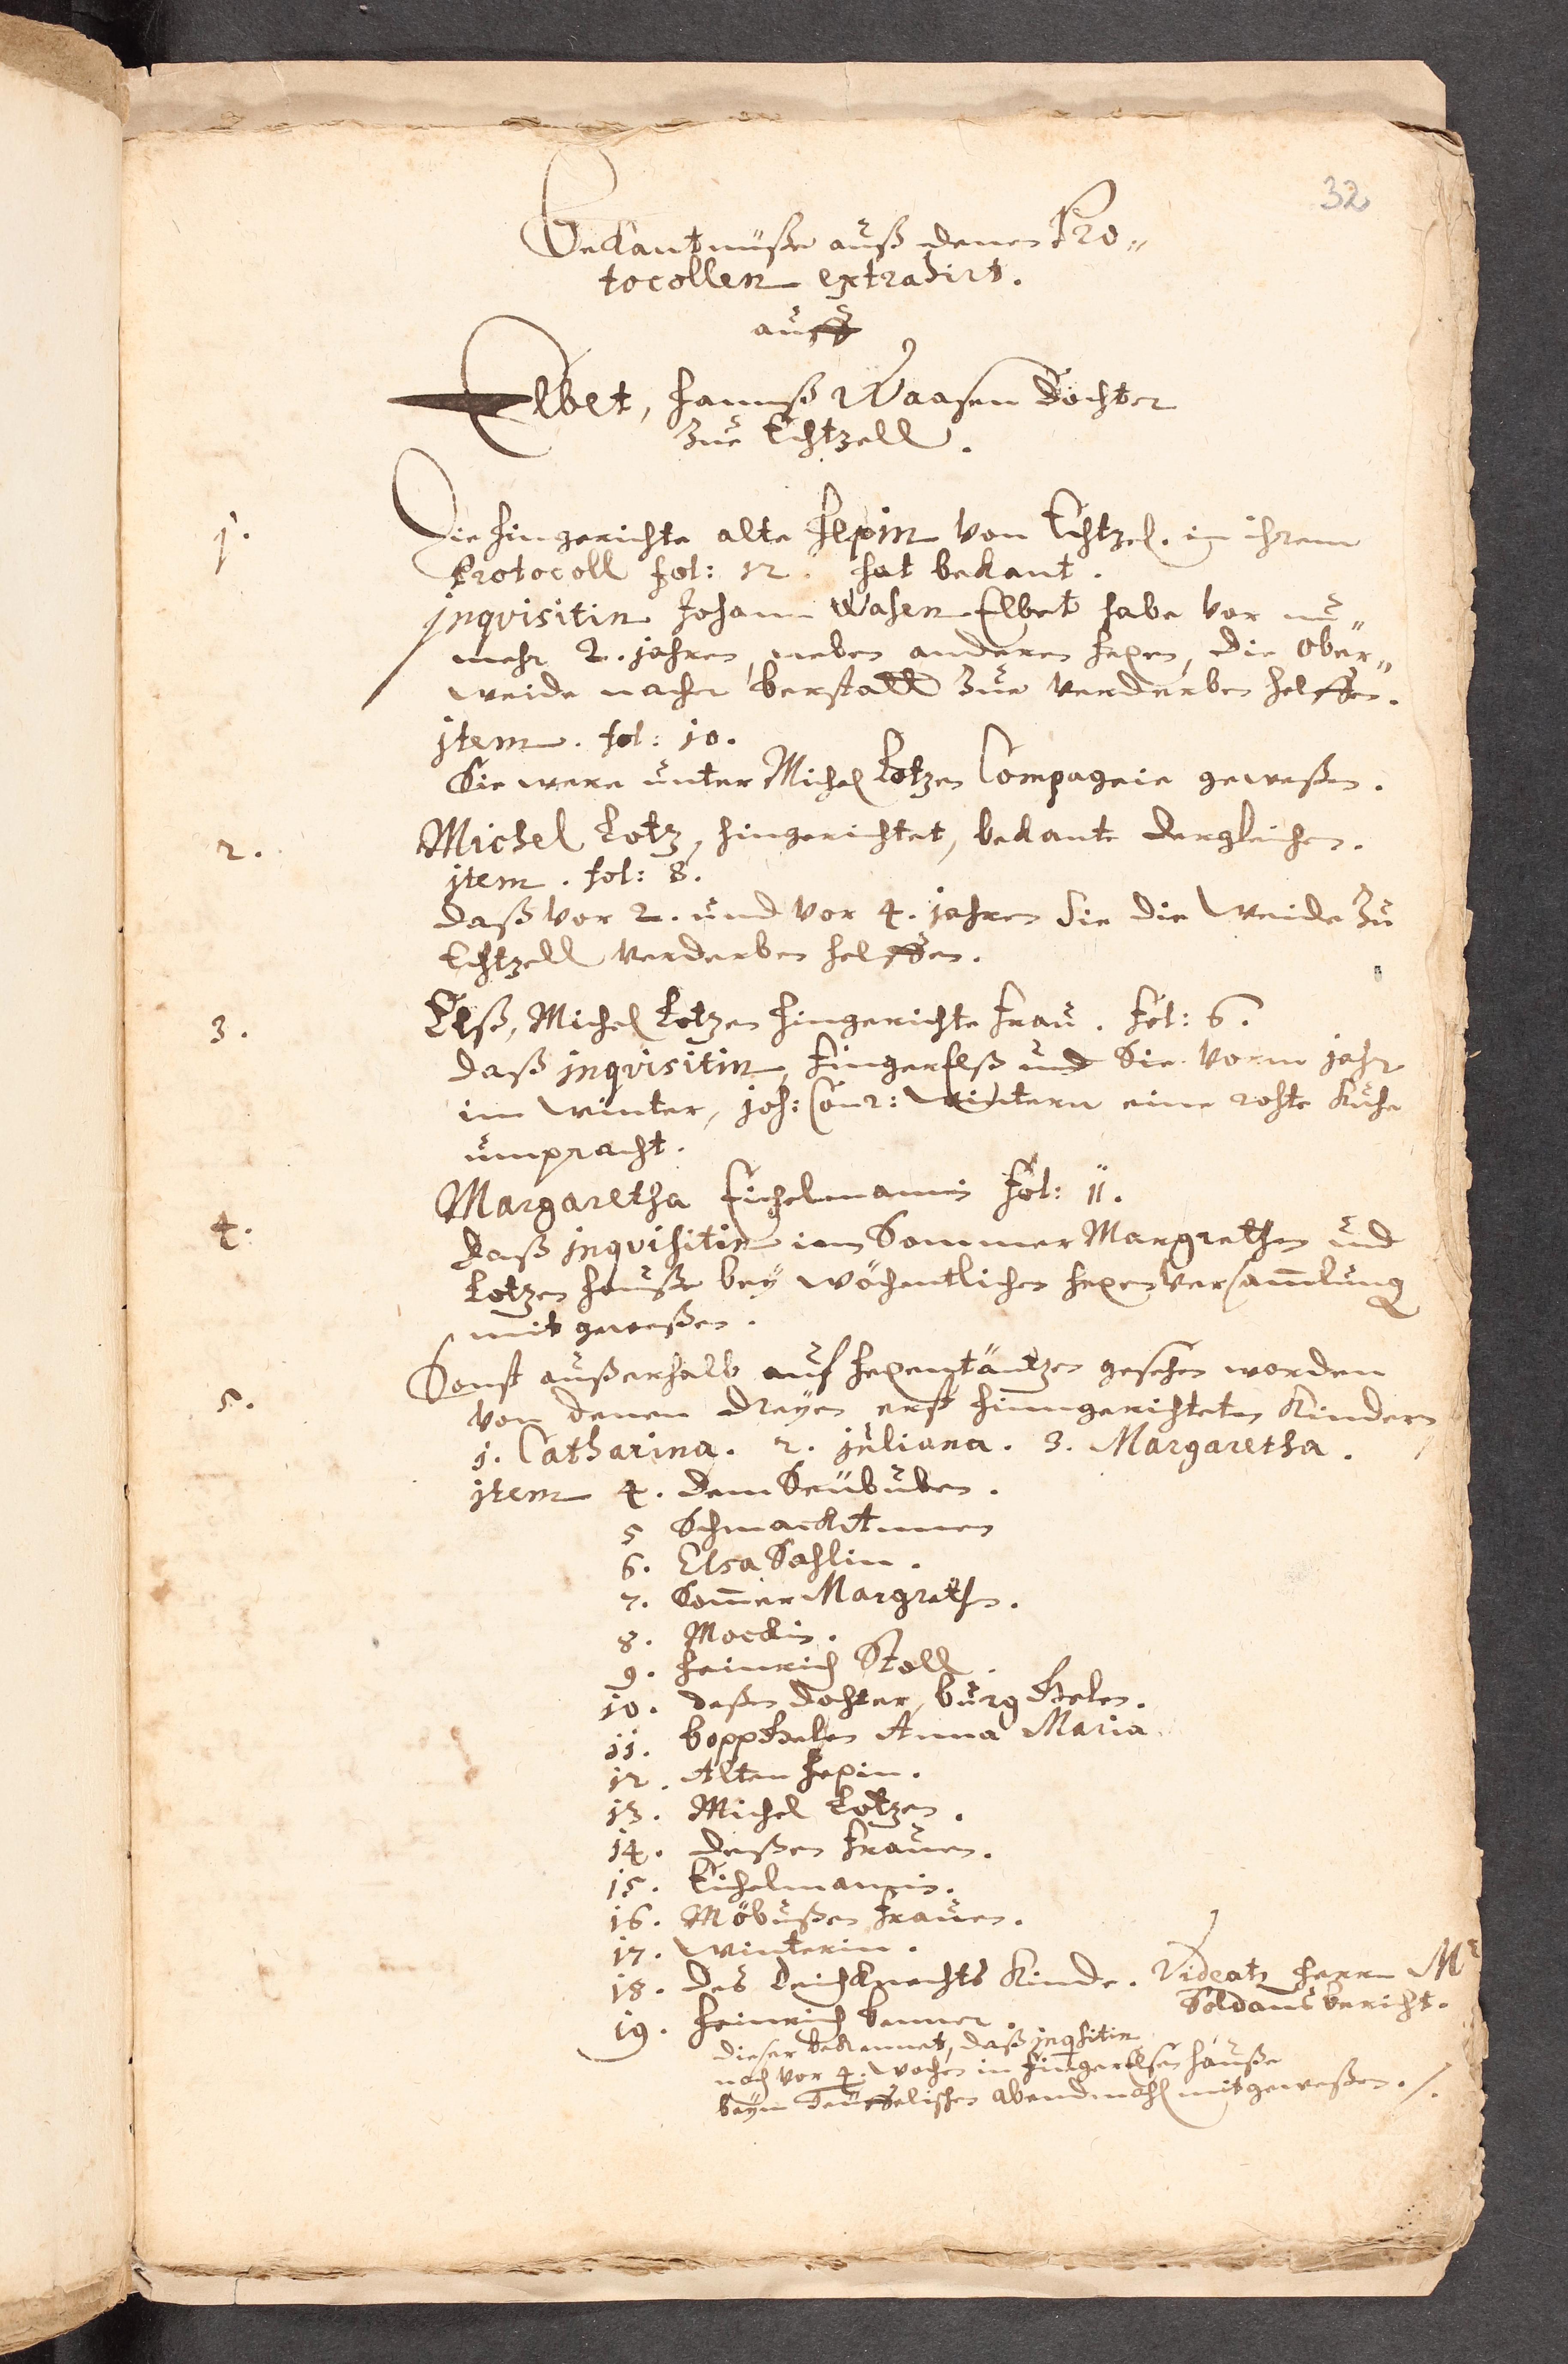 32
Bekantnüße auß denen Pro„
tocollen extrahirt.
auff
Elbet, Hannß Waasen Dochter
zue Echtzell.
1. Die hingerichte alte Hepin von Echtzel. in ihrem
Protocoll fol: 12. hat bekant.
jnqvisitin Johann Wasen Elbet habe vor nu„
mehr 2. jahren, neben anderen hexen, die Ober„
weide nacher berstatt zue verderben helffen.
jtem. fol: 10.
Sie were unter Michel Lotzen Compagnie geweßen.
2. Michel Lotz, hingerichtet, bekante dergleichen.
jtem. fol: 8.
daß vor 2. und vor 4. jahren sie die Weide zu
Echtzell verderben helffen.
3. Elß, Michel Lotzen hingerichte Frau. Fol: 6.
daß jnqvisitin, Fingerelß und Sie vorm jahr
im Winter, joh: Conr: Wintern eine rohte Kuhe
umpracht.
4. Margaretha Eichelmannin Fol: 11.
daß jnqvisitin im Sommer Margrethen und
Lotzen hauße bey wöchentlichen hexenversamlung
mit geweßen.
5. Sonst außerhalb auf hexentäntzen gesehen worden
von denen dreyen erst hinngerichteten Kindern
1. Catharina. 2. juliana. 3. Margaretha.
jtem 4. dem Seububen.
5 Schmackt
6. Elsa Sahlin.
7. Som̄er Margrethen.
8. Mockin.
9. Heinrich Stoll.
10. deßen dochter, burg
11. Anna Maria
12. Alten Hepin.
13. Michel Lotzen.
14. deßen Frauen.
15. Eichelmannin.
16. Möbußen Frauen.
17. Winterin.
18. des Teichknechts Kinde. Videatr herrn Mr
Soldans bericht.
19. Heinrich benner.
dieser bekennet, daß jnqsitin
noch vor 4. wochen in Fingerelsen hauße
beym Teuffelischen abendmahl mitgeweßen. /.